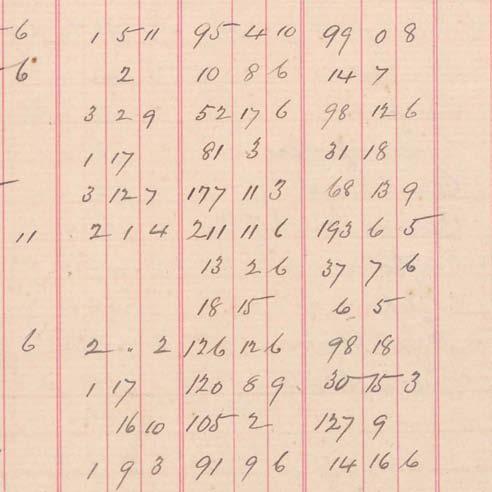 6 1 5 11 95 4 10 99 0 8
6 2 10 8 6 14 7
3 2 9 52 17 6 98 12 6
1 17 81 3 31 18
3 12 7 177 11 3 68 13 9
11 2 1 4 211 11 6 193 6 5
13 2 6 37 7 6
18 15 6 5
6 2 " 2 126 12 6 98 18
1 17 120 8 9 30 15 3
16 10 105 2 127 9
1 9 3 91 9 6 14 16 6